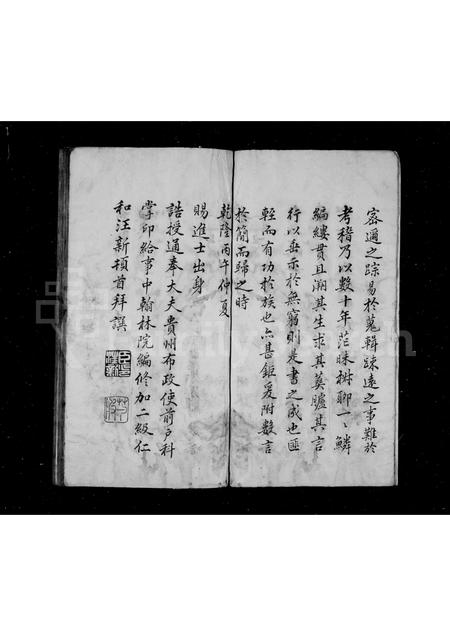 密邇之踪易於蒐輯疎遠之事難於
考稽乃以數十年茫昧樹聊一一鱗
編縷貫且溯其生求其奠臚其言
行以垂示於無窮則是書之成也匪
輕而有功於族也亦甚鉅爰附數言
於簡而歸之時
乾隆丙午仲夏
賜進士出身
誥授通奉大夫貴州布政使前戶科
掌印給事中翰林院編修加二級仁
和汪新頓首拜譔